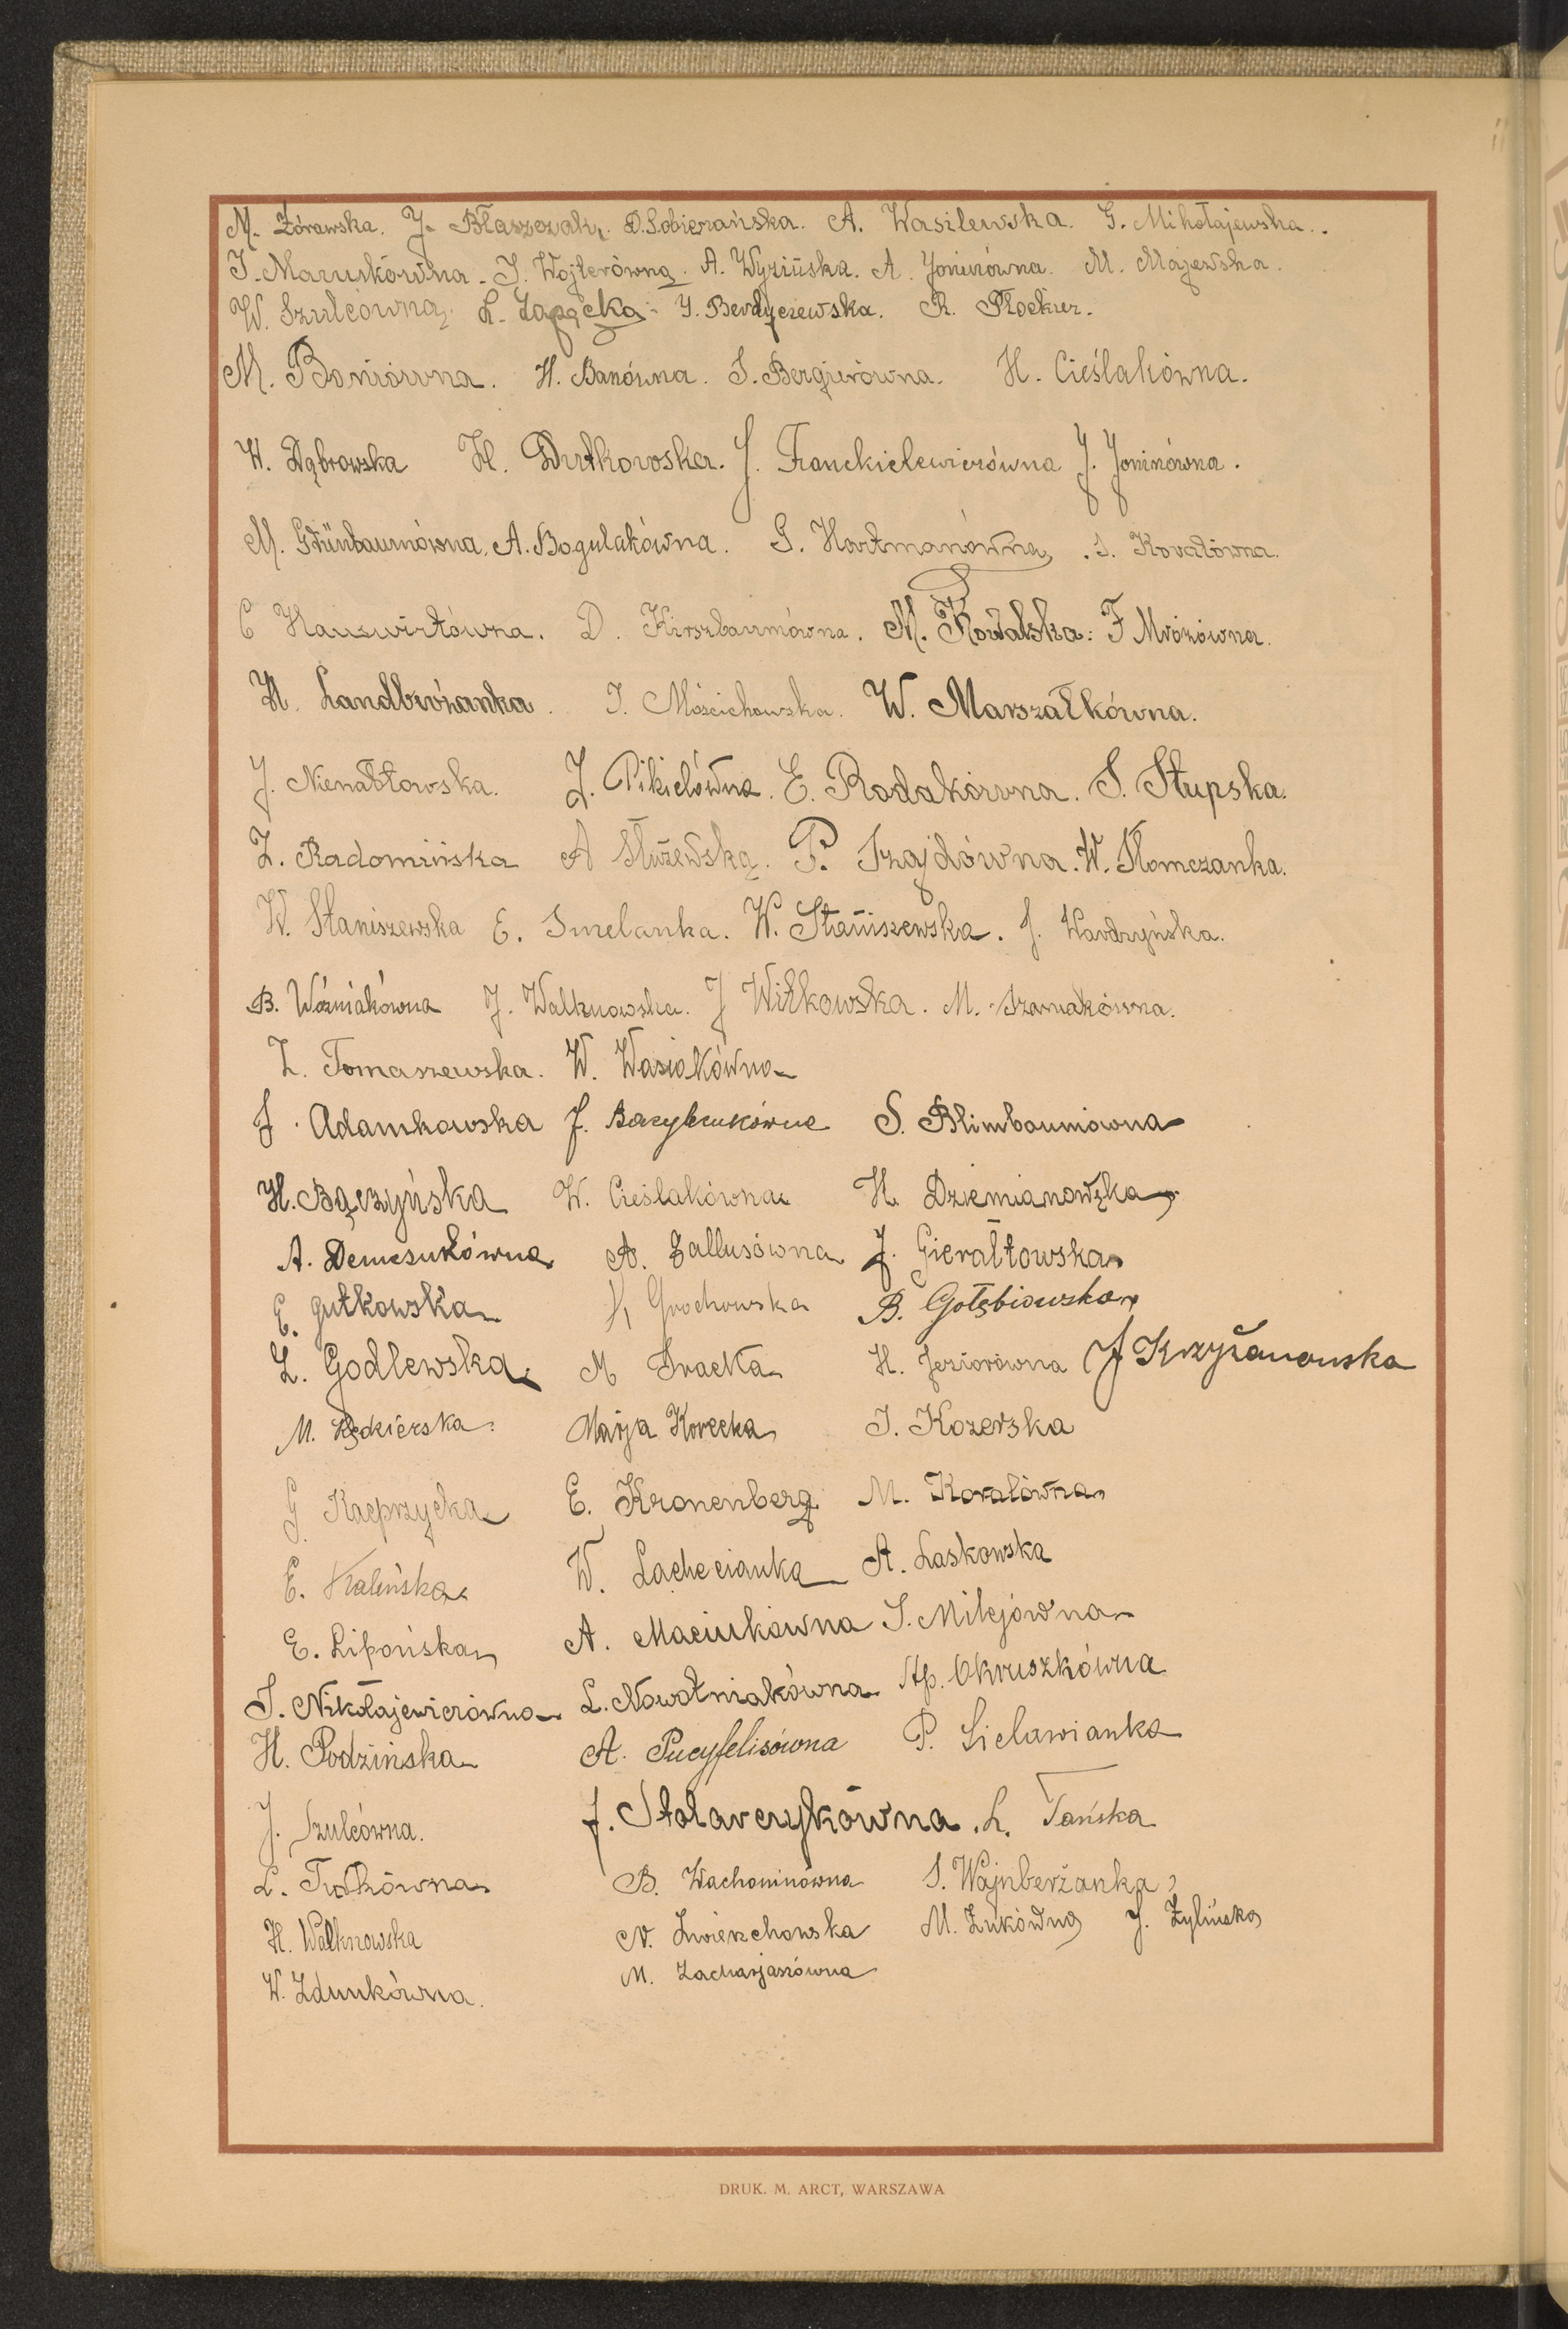 M. Żórawska. J. Błaszczak. D. Sobierańska. A. Wasilewska. G. Mikołajewska.
J. Maruskówna. J. Wojterówna. A. Wyzińska. A. Joninówna. M. Majewska.
W. Szulcówna. L. Zapącka. J. Berdyczewska. R. Płockier.
M. Boniówna. H. Banówna. S. Bergierówna. H. Cieślakówna.
H. Dąbrowska H. Dutkowska. J. Franckielewiczówna J. Joninówna.
M. Grünbaumówna. A. Bogulakówna. G. Hartmanówna. S. Kovalówna.
C Hauswirtówna. D. Kirszbaumówna. M. Kowalska. F Mrozówna.
H. Landbrożanka. J. Mościchowska. W. Marszałkówna.
J. Nienałtowska. J. Pikielówna. E. Rodakówna. S. Słupska.
Z. Radomińska A Służewska. P. Szajdówna. W. Słomczanka.
W. Staniszewska E. Smelanka. W. Staniszewska. J. Wardzyńska.
B. Woźniakówna J. Walknowska. J Witkowska. M. Szaniakówna.
Z. Tomaszewska. W. Wasiakówna
J. Adamkowska J. Bazylczukówna S. Blimbaumówna
H. Bączyńska W. Cieślakówna H. Dziemianowska
A. Demczukówna A. Gallusówna J. Gierałtowska
E. Gutkowska H Grochowska B. Gołębiowska
Z. Godlewska M Iracka H. Jeziorówna J Krzyżanowska
M. Kędzierska. Marja Korecka J. Kozerska
G. Kacprzycka E. Kronenberg M. Kovalówna
E. Kalińska W. Lachecianka A. Laskowska
E. Lipońska A. Maciukówna S. Milejówna
S. Nikołajewiczówna L. Nowotniakówna Ap. Okruszkówna
H. Podzińska A. Pucyfelisówna P. Sielawianka
J. Szulcówna. J. Stolarczykówna. L. Tańska
L. Turkówna B. Wachoninówna S. Wajnberżanka
H. Walknowska N. Zwierzchowska M. Żukówna J. Żylińska
W. Zdunkówna. M. Zacharjaszówna
DRUK. M. ARCT, WARSZAWA